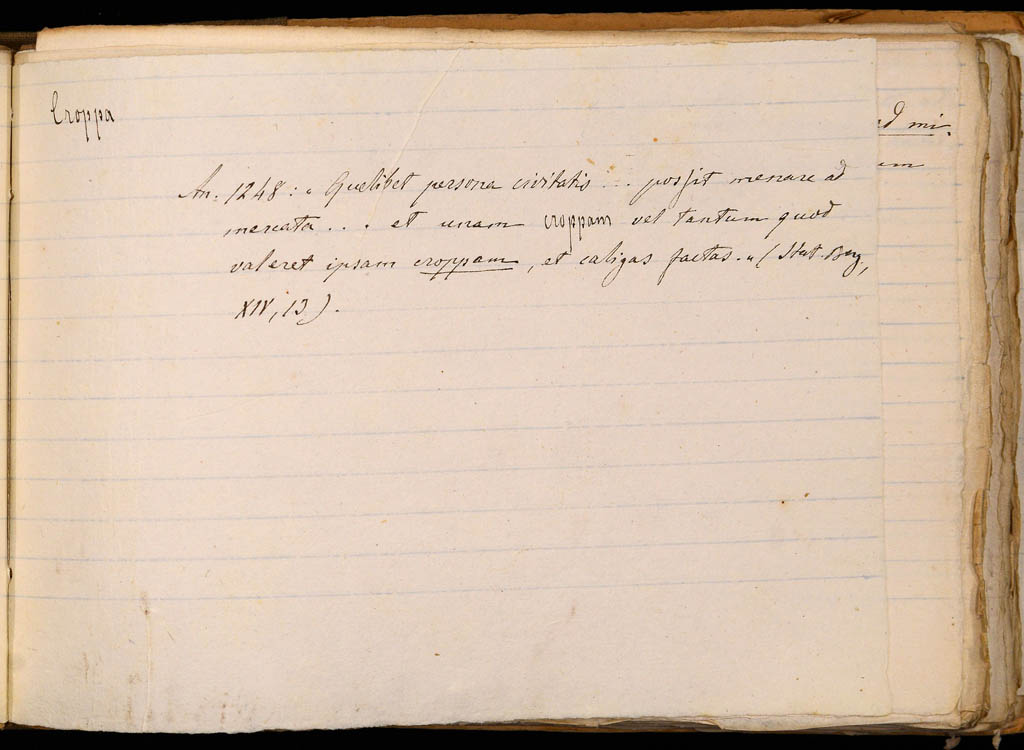 Croppa
ad mi-
um
An. 1248: « Quelibet persona civitatis ... possit menare ad
mercata ... et unam croppam vel tantum quod
valeret ipsam croppam, et caligas factas. » (Stat. Berg.,
XIV, 13).